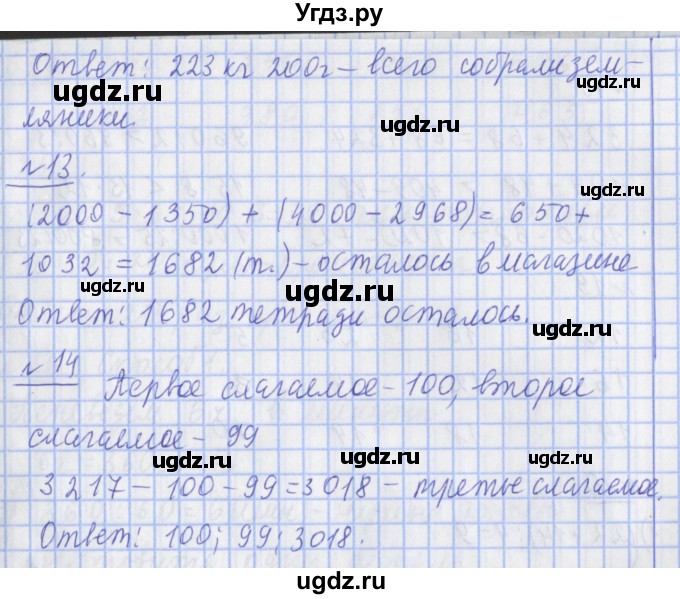 Угдз.ру
Ответ: 223 кг 200г – всего собрали зем-
ugdz.ru
ugdz.ru
ляники.
ugdz.ru
№13.
ugdz.ru
(2000 – 1350) + (4000 – 2968) = 650 +
1032 = 1682 (т.) – осталось в магазине
ugdz.ru
ugdz.ru
Ответ: 1682 тетради осталось.
ugdz.ru
№14
ugdz.ru
Первое слагаемое – 100, второе
слагаемое – 99
ugdz.ru
ugdz.ru
3217 – 100 – 99 = 3018 – третье слагаемое.
Ответ: 100; 99; 3018.
ugdz.ru
ugdz.ru
ugdz.ru